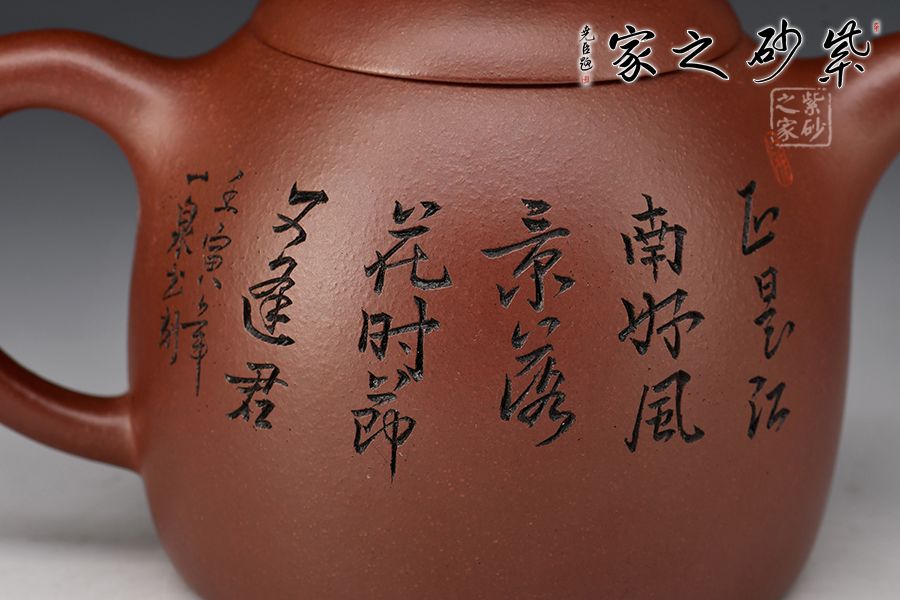 紫砂之家
堯臣題
紫砂之家
正是江
南好風
景落
花时節
又逢君
壬寅年
一泉書刻